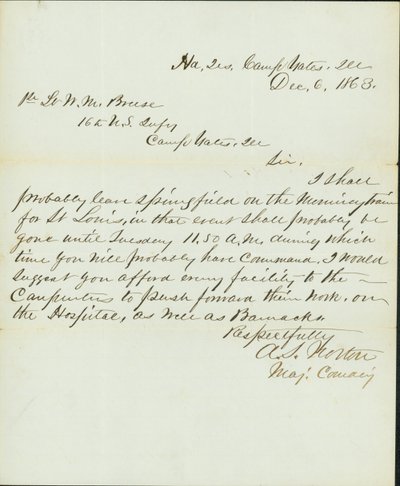 Hd, Qrs. Camp Yates. Ill
Dec, 6, 1863.
1st Lt W. M. Breese
16th U.S. Infy
Camp Yates. Ill
Sir.
I shall
probably leave Springfield on the Morning train
for St Louis, in that event shall probably be
gone until Tuesday 11.50 A.M. during which
time you will probably have Command. I would
suggest you afford every facility to the
Carpenters to push forward their work. on
the Hospital, as well as Barracks.
Respectfully
A. S. Norton
Maj. Comdg